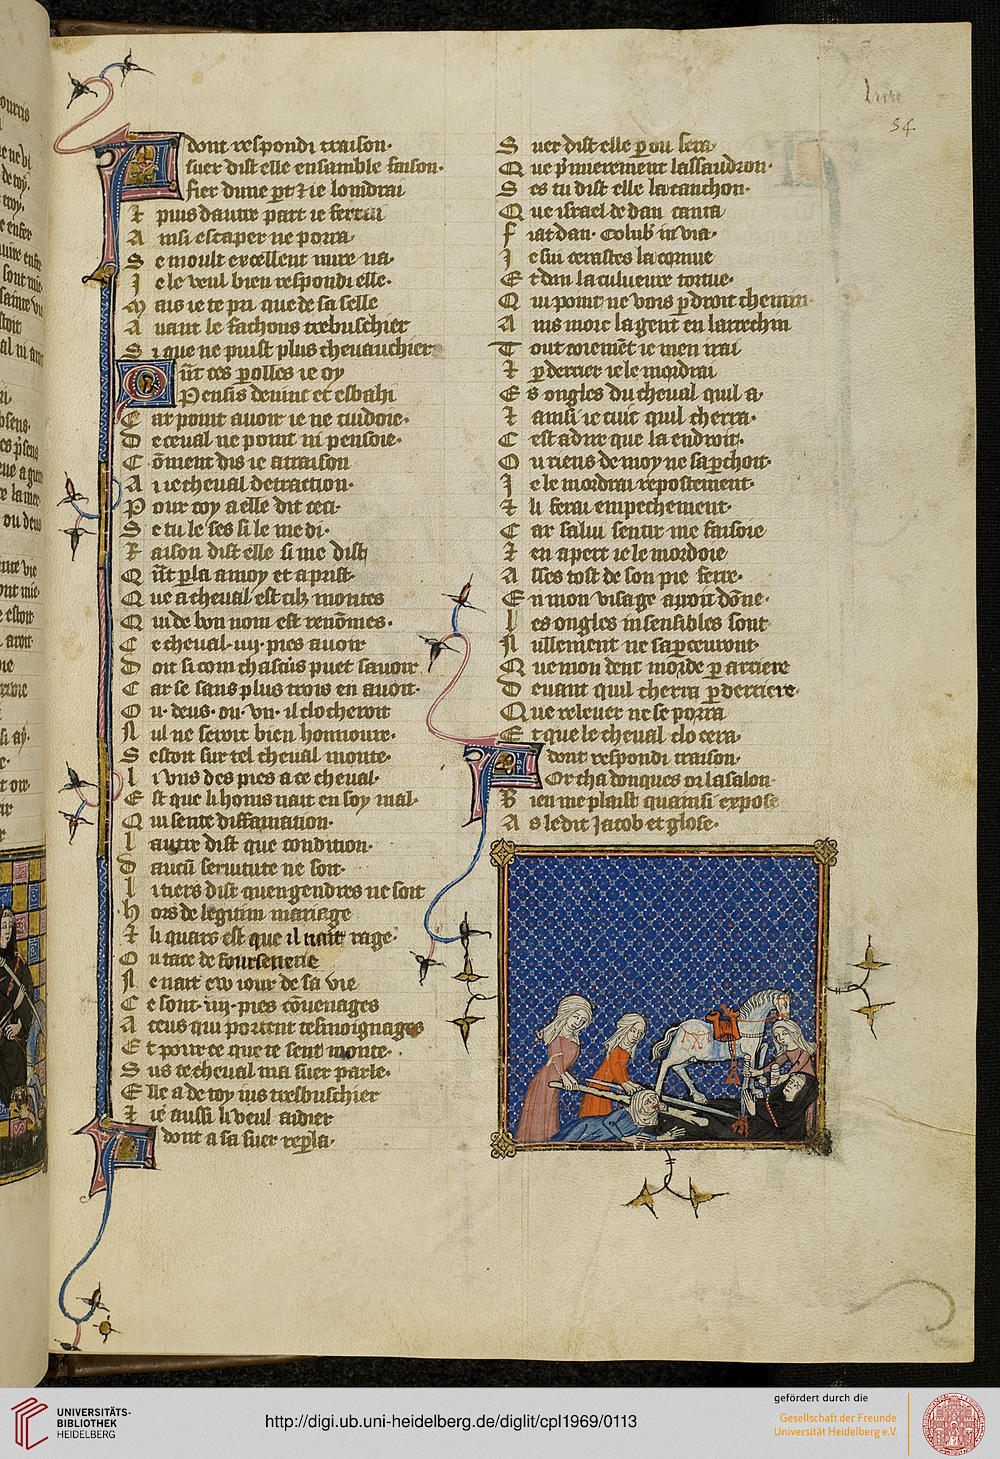 dont respondi traison·
suer dist elle ensamble faison·
fier dune p̲t ⁊ ie lomdrai
Et puis dautre part ie ferrai
A insi escaper ne porra·
S e moult excellent mire na·
J e le veul bien respondi elle·
M ais ie te pri que de sa selle
A uant le fachons trebuschier
S i que ne puist plus cheuauchier
Q ūt ces p̲olles ie oy
Pensis deuint et esbahi
C ar point auoir ie ne cuidoie·
D e ceual ne point ni pensoie·
C ōment dis ie a traison
A i ie cheual detraction·
P our toy a elle dit ceci·
S e tu le ses si le me di·
R aison dist elle si me dist
Q ūt p̲la a moy et aprist·
Q ue a cheual est cilz montes
Q ui de bon nom est renōmes·
C e cheual ·iiij· pies auoir
D oit si com chascūs puet sauoir
C ar se sans plus trois en auoit·
O u· deus· ou· vn· il clocheroit
N ul ne seroit bien honnoure·
S estoit sur tel cheual monte·
L i vns des pies a ce cheual·
E st que li homs nait en soy mal·
Q ui sente diffamation·
L autre dist que condition·
D aucū seruitute ne soit·
L i tiers dist quengendres ne soit
H ors de legitim mariage
Et li quars est que il nait rage·
O u tace de foursenerie
N e nait ew iour de sa vie
C e sont ·iiij· pies cōuenages
A ceus qui portent tesmoignages
E t pour ce que te sent monte·
S us ce cheual ma suer parle·
E lle a de toy ius tresbuschier
Et ie aussi li veul aidier
dont a sa suer rep̲la·
S uer dist elle p̲ ou sera·
Q ue p̄mierement lassaudron·
S es tu dist elle la canchon·
Q ue israel de dan canta
F iat dan· Colub' in via·
J e sui cerastes la cornue
E t dan la culueure tortue·
Q ui point ne vois p̲ droit chemin·
A ins morc la gent en larrechin
T out coiemēt ie men irai
Et p̲ derrier ie le mordrai
E s ongles du cheual quil a·
Et ainsi ie cuit quil cherra·
C est a dire que la endroit·
O u riens de moy ne sap̲choit·
J e le mordrai repostement·
Et li ferai empechement·
C ar salui sentir me faisoie
Et en apert ie le mordoie
A sses tost de son pie ferre·
E n mon visage auroit dōne·
L es ongles insensibles sont
N ullement ne sap̲ceuront·
Q ue mon dent morde p̲ arriere
D euant quil cherra p̲ derriere·
Q ue releuer ne se porra
E t que le cheual clocera·
dont respondi traison·
Or cha donques or lasalon·
B ien me plaist quainsi expose
A s le dit Jacob et glose·
54
UNIVERSITÄTS-
BIBLIOTHEK
HEIDELBERG
http://digi.ub.uni-heidelberg.de/diglit/cpl1969/0113
gefördert durch die
Gesellschaft der Freunde
Universität Heidelberg e.V.